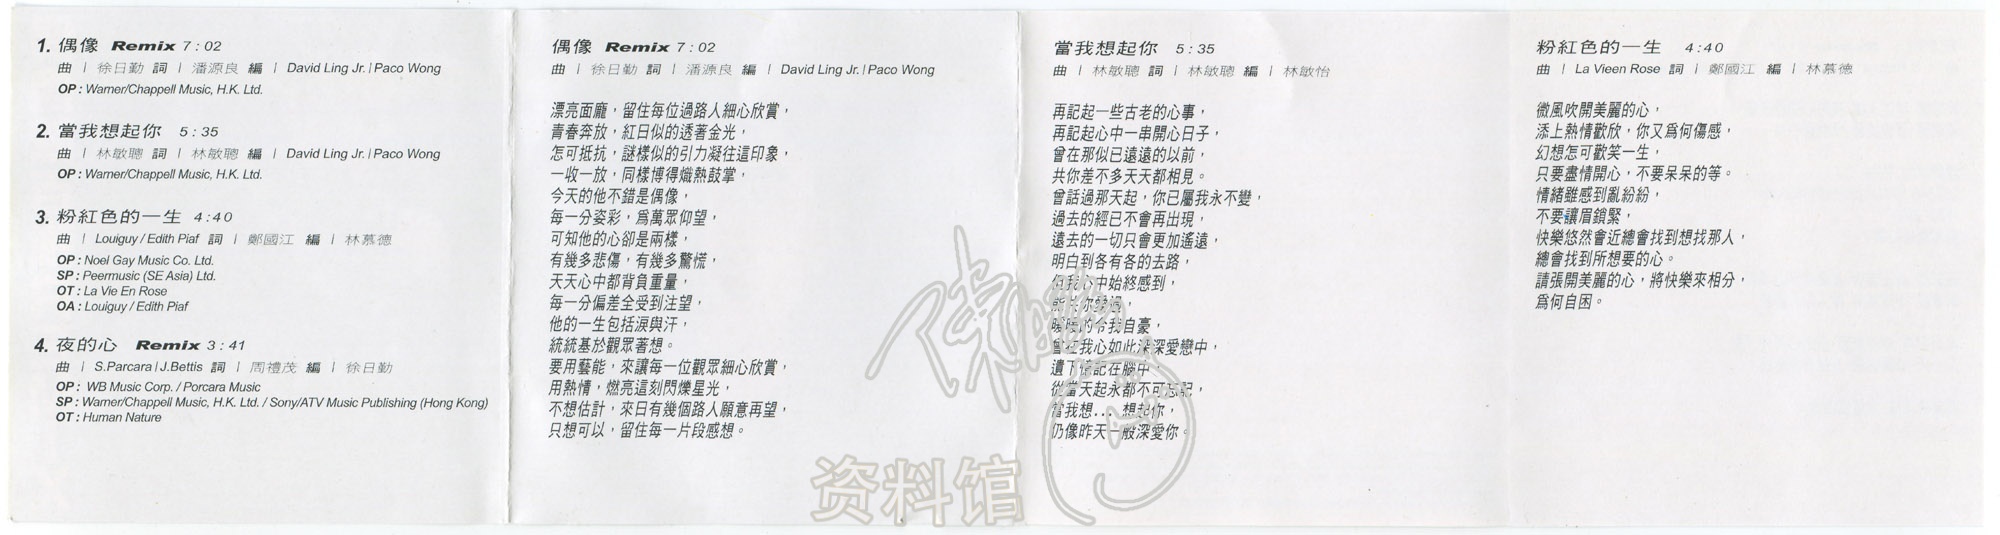 1. 偶像 Remix 7:02
曲 | 徐日勤 詞 | 潘源良 編 | David Ling Jr. | Paco Wong
OP : Warner/Chappell Music, H.K. Ltd.
2. 當我想起你 5:35
曲 | 林敏聰 詞 | 林敏聰 編 | David Ling Jr. | Paco Wong
OP : Warner/Chappell Music, H.K. Ltd.
3. 粉紅色的一生 4:40
曲 | Louiguy / Edith Piaf 詞 | 鄭國江 編 | 林慕德
OP : Noel Gay Music Co. Ltd.
SP : Peermusic (SE Asia) Ltd.
OT : La Vie En Rose
OA : Louiguy / Edith Piaf
4. 夜的心 Remix 3:41
曲 | S.Parcara | J.Bettis 詞 | 周禮茂 編 | 徐日勤
OP : WB Music Corp. / Porcara Music
SP : Warner/Chappell Music, H.K. Ltd. / Sony/ATV Music Publishing (Hong Kong)
OT : Human Nature
偶像 Remix 7:02
曲 | 徐日勤 詞 | 潘源良 編 | David Ling Jr. | Paco Wong
漂亮面龐，留住每位過路人細心欣賞，
青春奔放，紅日似的透著金光，
怎可抵抗，謎樣似的引力凝往這印象，
一收一放，同樣博得熾熱鼓掌，
今天的他不錯是偶像，
每一分姿彩，爲萬眾仰望，
可知他的心卻是兩樣，
有幾多悲傷，有幾多驚慌，
天天心中都背負重量，
每一分偏差全受到注望，
他的一生包括淚與汗，
統統基於觀眾著想。
要用藝能，來讓每一位觀眾細心欣賞，
用熱情，燃亮這刻閃爍星光，
不想估計，來日有幾個路人願意再望，
只想可以，留住每一片段感想。
當我想起你 5:35
曲 | 林敏聰 詞 | 林敏聰 編 | 林敏怡
再記起一些古老的心事，
再記起心中一串開心日子，
曾在那似已遠遠的以前，
共你差不多天天都相見。
曾話過那天起，你已屬我永不變，
過去的經已不會再出現，
遠去的一切只會更加遙遠，
明白到各有各的去路，
但我心中始終感到，
能共你熱過，
暖暖的令我自豪，
曾在我心如此深深愛戀中，
遺下憶記在腦中
從當天起永都不可忘記，
當我想... 想起你，
仍像昨天一般深愛你。
粉紅色的一生 4:40
曲 | La Vieen Rose 詞 | 鄭國江 編 | 林慕德
微風吹開美麗的心，
添上熱情歡欣，你又爲何傷感，
幻想怎可歡笑一生，
只要盡情開心，不要呆呆的等。
情緒雖感到亂紛紛，
不要讓眉鎖緊，
快樂悠然會近總會找到想找那人，
總會找到所想要的心。
請張開美麗的心，將快樂來相分，
爲何自困。
资料馆